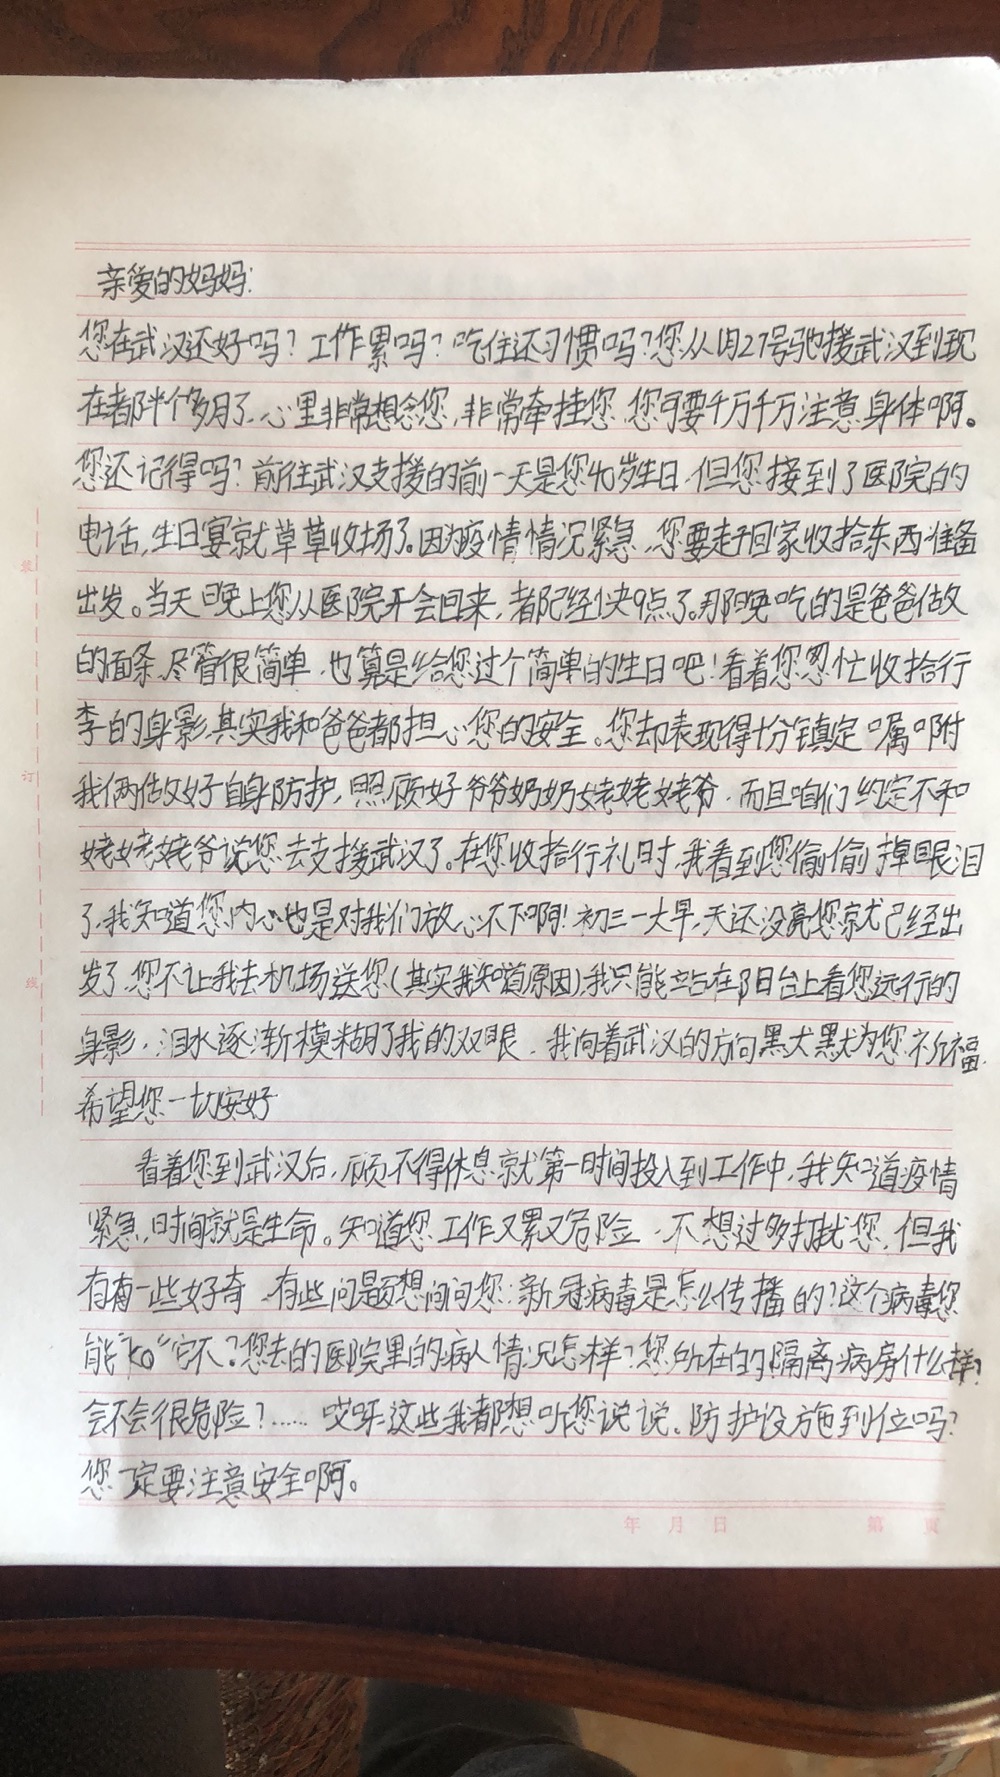 亲爱的妈妈:
您在武汉还好吗?工作累吗?吃住还习惯吗?您从1月27号驰援武汉到现
在都半个多月了,心里非常想念您,非常牵挂您,您可要千万千万注意身体啊。
您还记得吗?前往武汉支援的前一天是您40岁生日,但您接到了医院的
电话,生日宴就草草收场了。因为疫情情况紧急,您要赶回家收拾东西准备
出发。当天晚上您从医院开会回来,都已经快9点了。那晚吃的是爸爸做
的面条,尽管很简单,也算是给您过个简单的生日吧!看着您忽忙收拾行
李的身影,其实我和爸爸都担心您的安全。您却表现得十分镇定,嘱咐
我俩做好自身防护,照顾好爷爷奶奶姥姥姥爷,而且咱们约定不和
姥姥姥爷说您去支援武汉了。在您收拾行礼时,我看到您偷偷掉眼泪
了,我知道您内心也是对我们放心不下啊!初三一大早,天还没亮您就已经出
发了,您不让我去机场送您(其实我知道原因),我只能站在阳台上看您远行的
身影,泪水逐渐模糊了我的双眼,我向着武汉的方向默默为您祈福,
希望您一切安好
看着您到武汉后,顾不得休息就第一时间投入到工作中,我知道疫情
紧急,时间就是生命。知道您工作又累又危险,不想过多打扰您,但我
有有一些好奇,有些问题想问问您:新冠病毒是怎么传播的?这个病毒您
能"ko"它不?您去的医院里的病人情况怎样?您所在的隔离病房什么样?
会不会很危险?……哎呀这些我都想听您说说。防护设施到位吗?
您一定要注意安全啊。
装
订
线
年 月 日 第 页